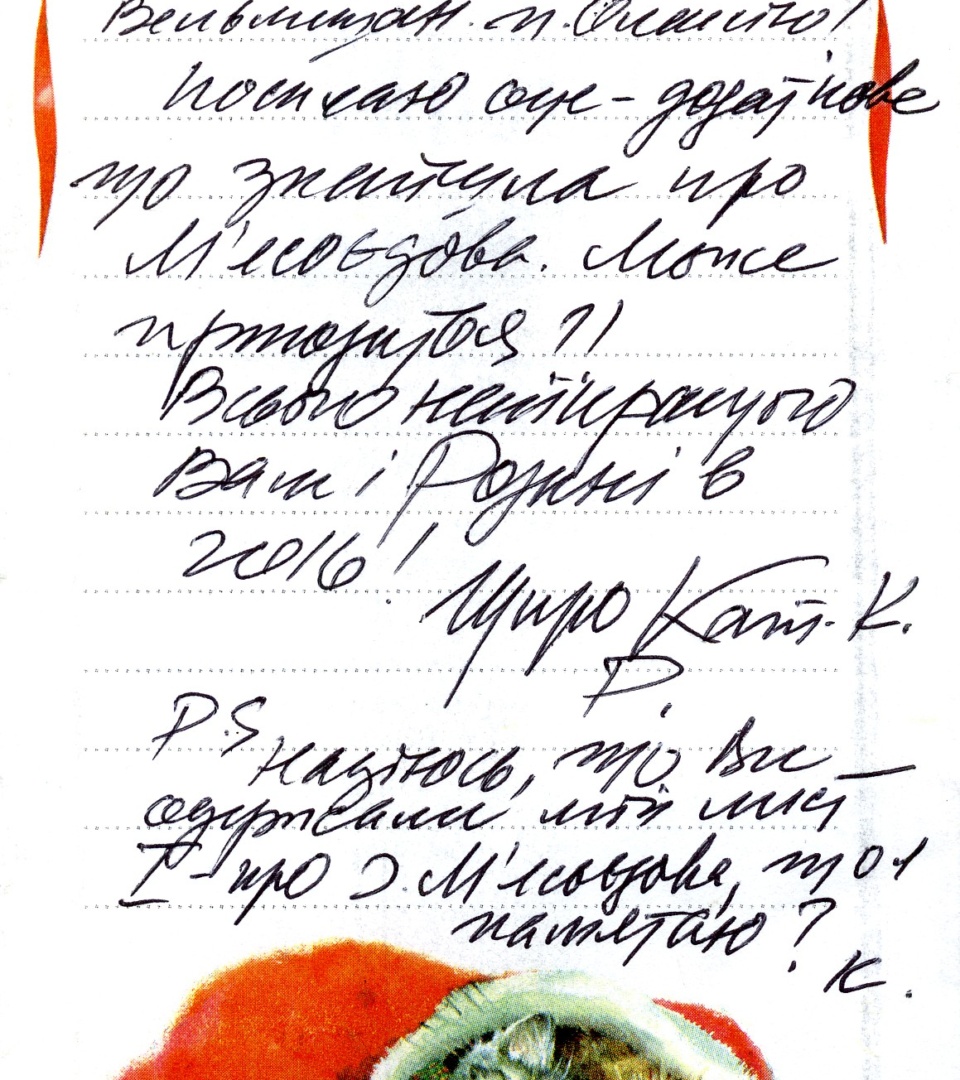 Вельмишан. п.
Посилаю оце - додаткове
що знайшла про
М'ясоєдова. Може
пригодиться !!
Всього найкращого
Вам і Родині в
2016!
Щиро Кат. К.
Р.
P.S
надіюсь, що Ви
одержали мій лист
I - про М'ясоєдова, що я
памятаю?
К.